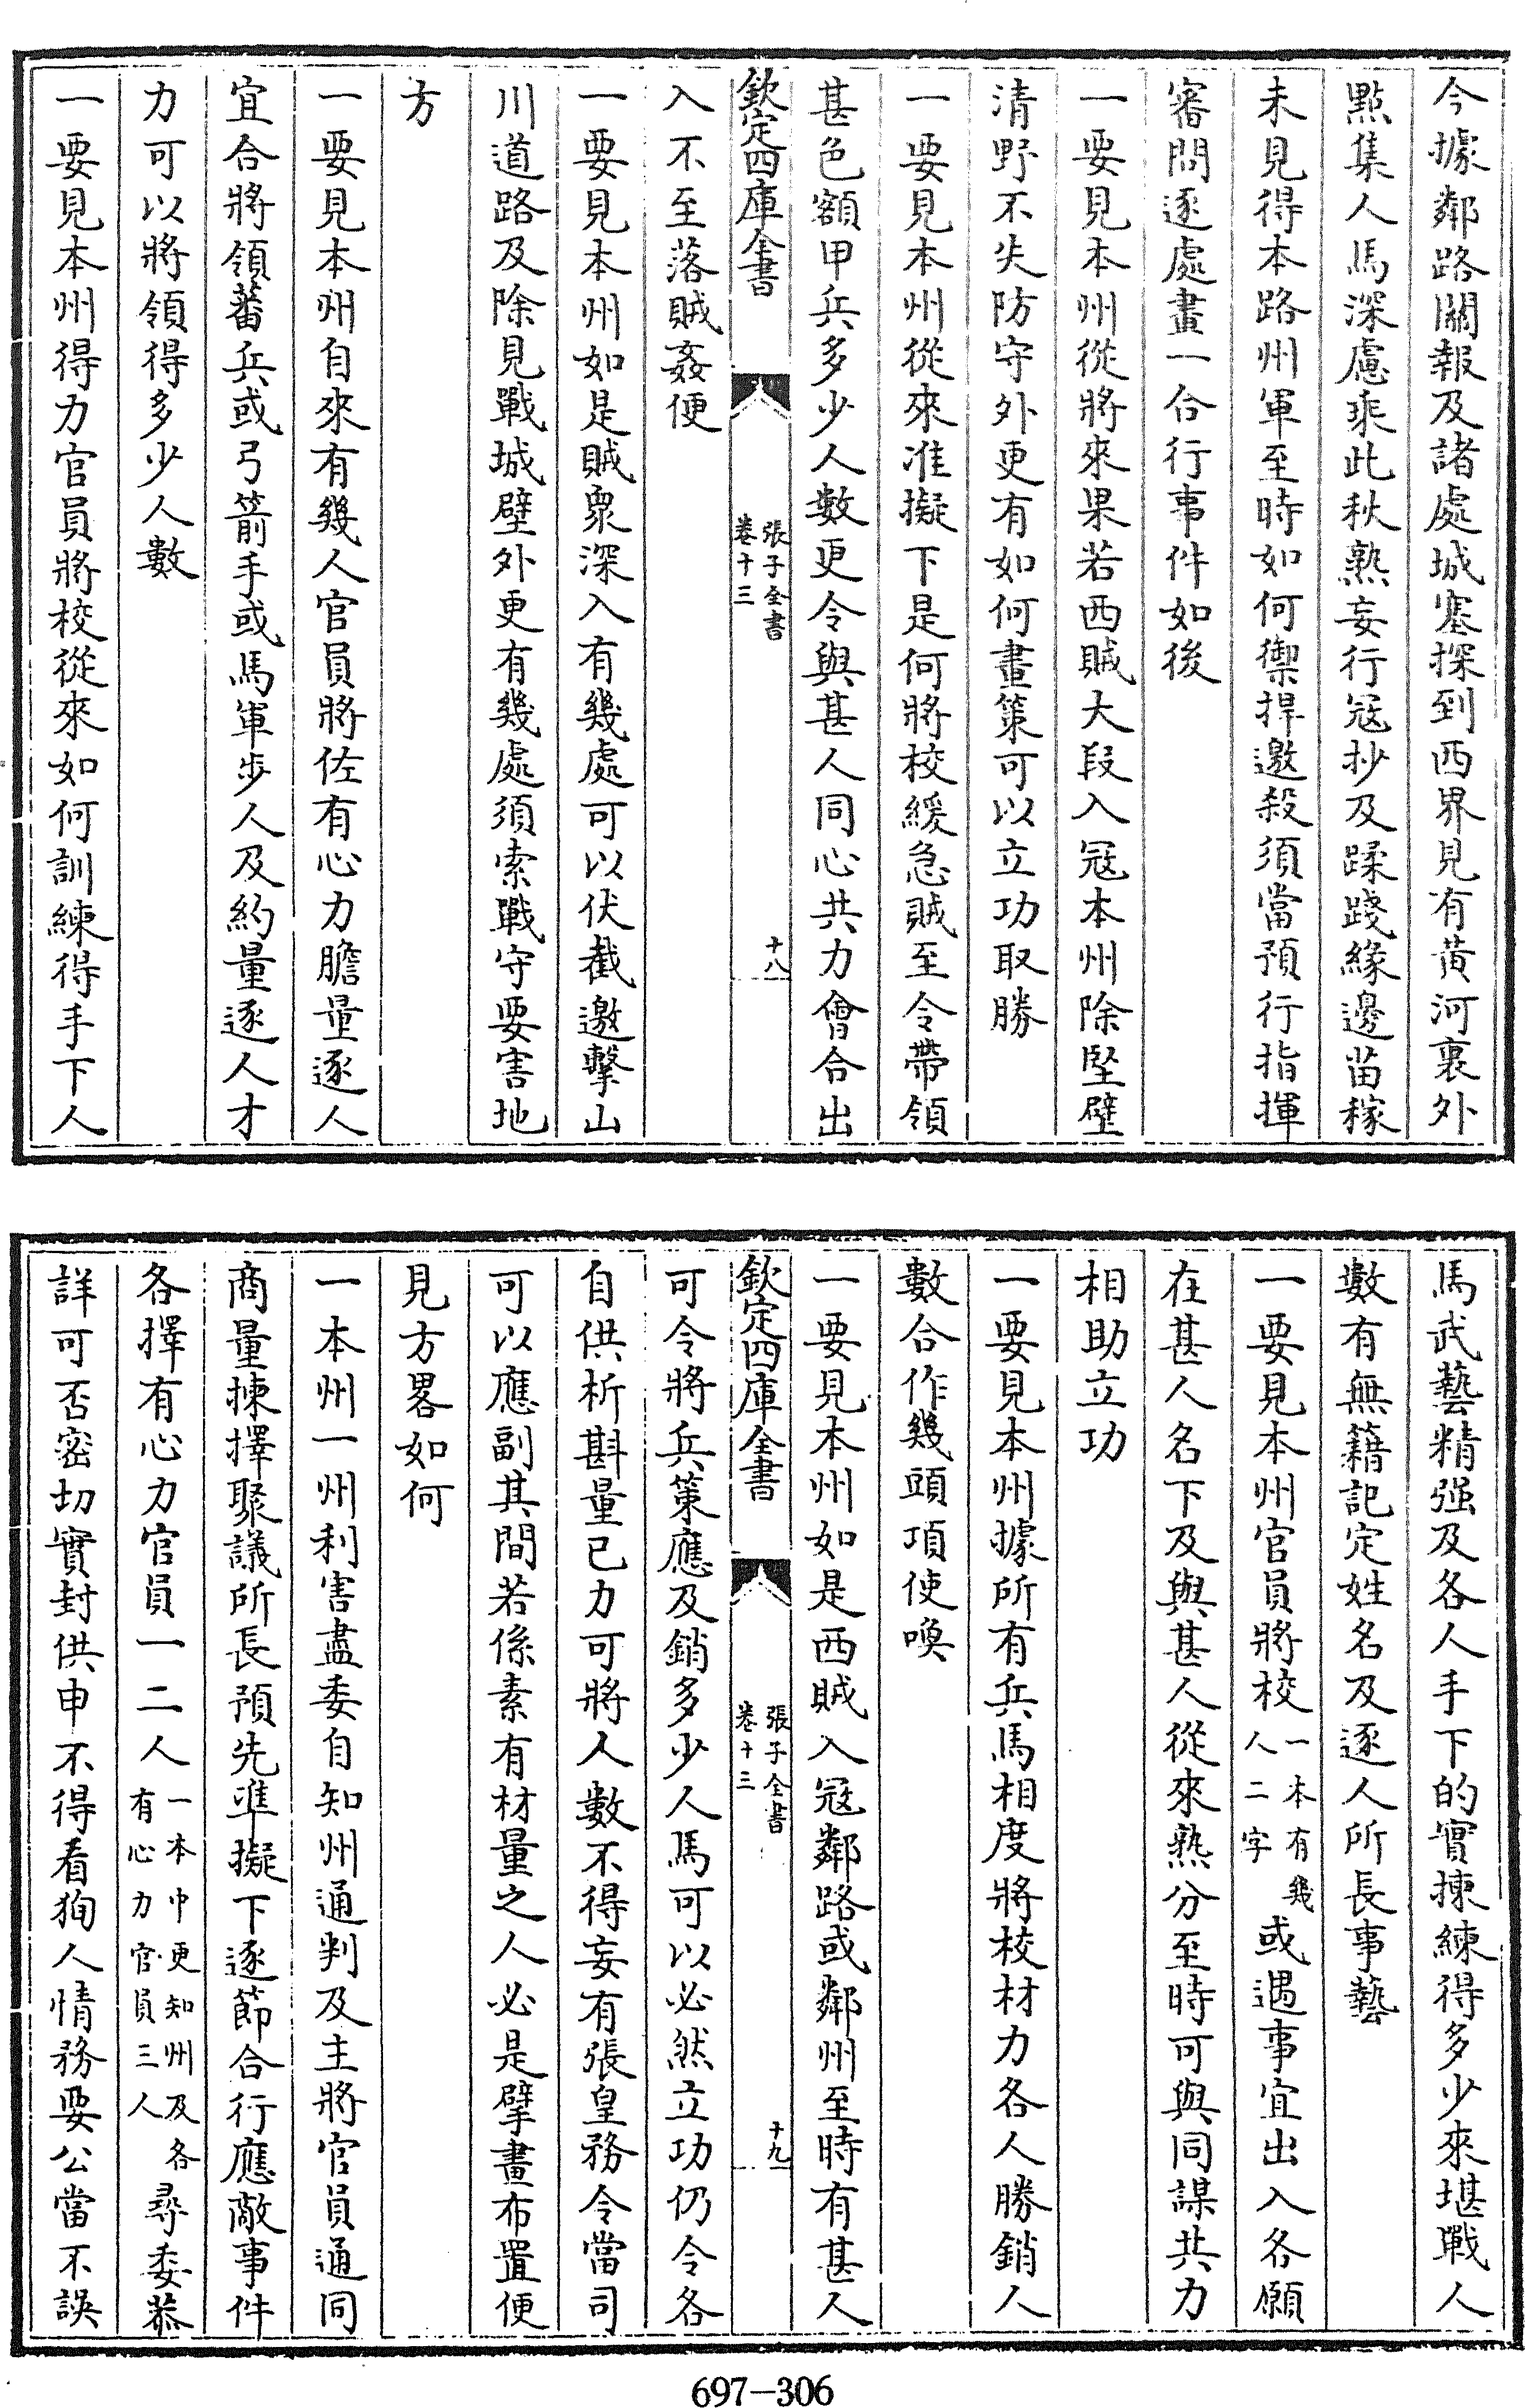 今據鄰路關報及諸處城塞探到西界見有黄河裏外
㸃集人馬深慮乘此秋熟妄行宼抄及蹂踐縁邊苗稼
未見得本路州軍至時如何禦捍邀殺須當預行指揮
審問逐處畫一合行事件如後
一要見本州從將來果若西賊大段入宼本州除堅壁
清野不失防守外更有如何畫策可以立功取勝
一要見本州從來准擬下是何將校緩急賊至令帶領
甚色額甲兵多少人數更令與甚人同心共力㑹合出
欽定四庫全書
張子全書
卷十三
十八
入不至落賊姦便
一要見本州如是賊衆深入有幾處可以伏截邀擊山
川道路及除見戰城壁外更有幾處須索戰守要害地
方
一要見本州自來有幾人官員將佐有心力膽量逐人
宜合將領蕃兵或弓箭手或馬軍步人及約量逐人才
力可以將領得多少人數
一要見本州得力官員將校從來如何訓練得手下人
馬武藝精强及各人手下的實揀練得多少來堪戰人
數有無籍記定姓名及逐人所長事藝
一要見本州官員將校一本有幾人二字或遇事宜出入各願
在甚人名下及與甚人從來熟分至時可與同謀共力
相助立功
一要見本州據所有兵馬相度將校材力各人勝銷人
數合作幾頭項使喚
一要見本州如是西賊入宼鄰路或鄰州至時有甚人
欽定四庫全書
張子全書
卷十三
十九
可令將兵策應及銷多少人馬可以必然立功仍令各
自供析斟量己力可將人數不得妄有張皇務令當司
可以應副其間若係素有材量之人必是擘畫布置便
見方畧如何
一本州一州利害盡委自知州通判及主將官員通同
商量揀擇聚議所長預先準擬下逐節合行應敵事件
各擇有心力官員一二人一本中更知州及各有心力官員三人尋委恭
詳可否密切實封供申不得看狥人情務要公當不誤
697-306